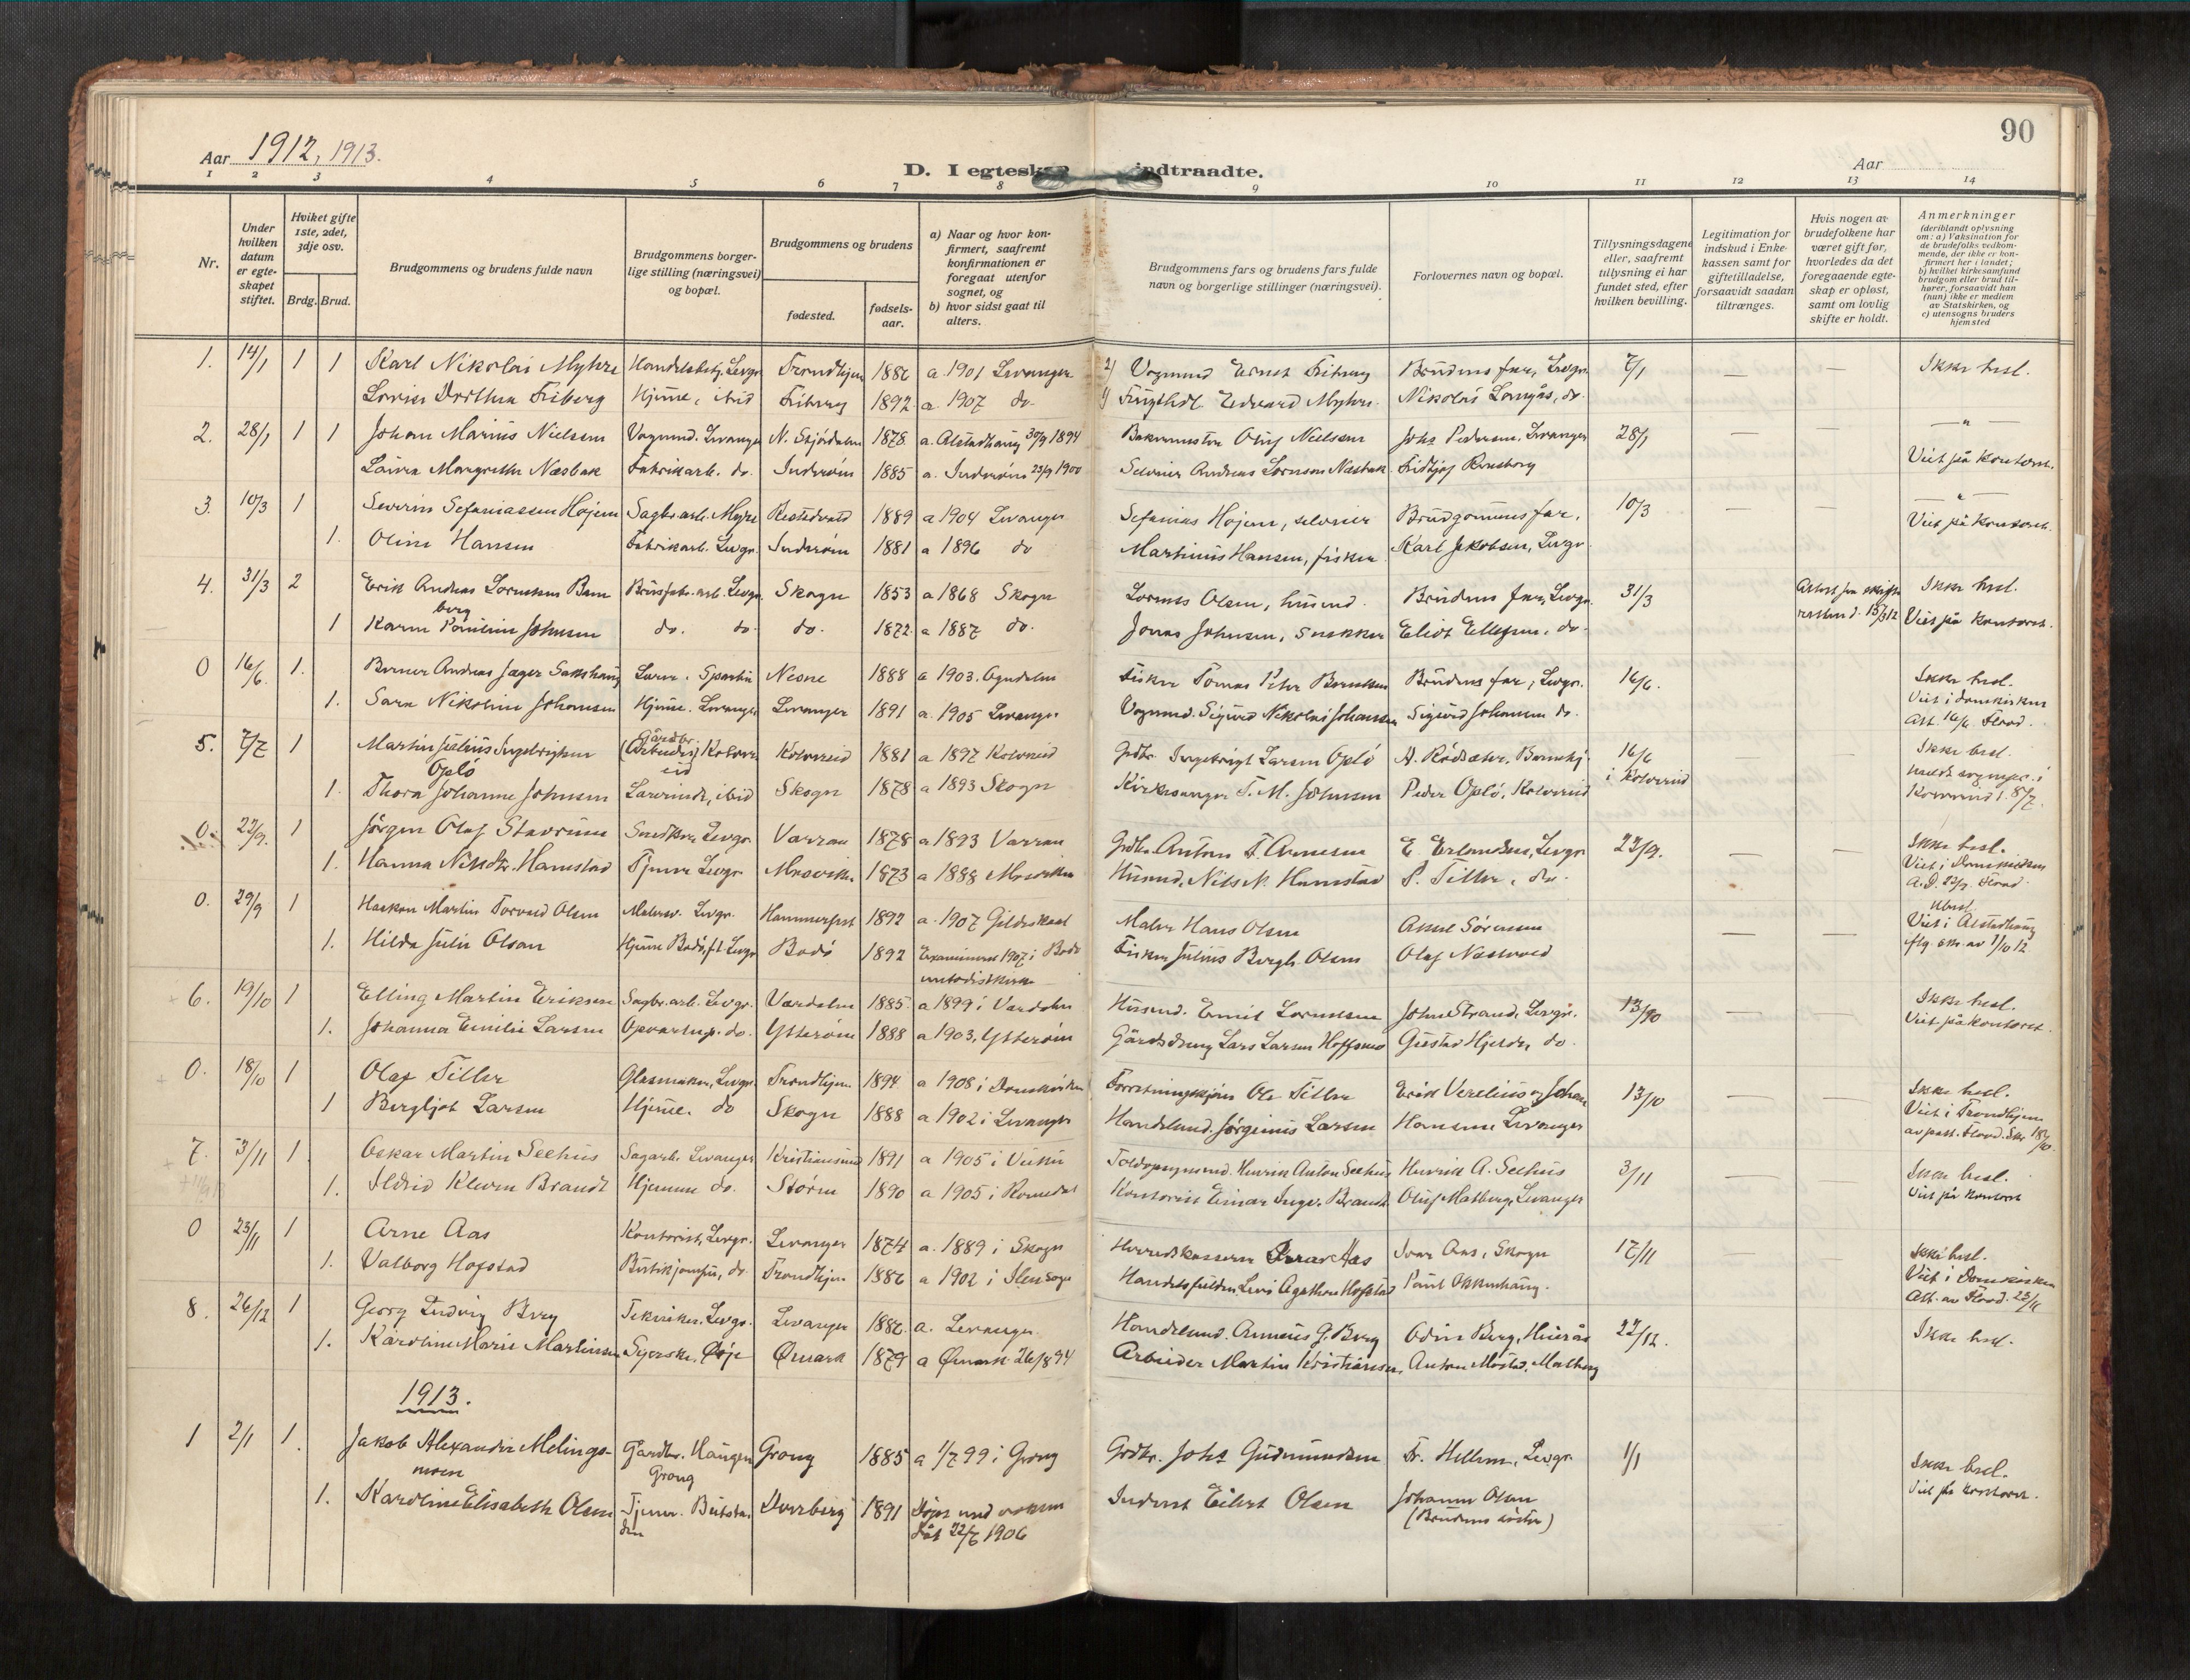 90
Aar 1912, 1913.
D. I egtesk indtraadte.
Aar
1 2 3 4 5 6 7 8 9 10 11 12 13 14
Nr.
Under hvilken datum er egteskapet stiftet.
Hviket gifte 1ste, 2det, 3dje osv.
Brdg. Brud.
Brudgommens og brudens fulde navn
Brudgommens borgerlige stilling (næringsvei) og bopæl.
Brudgommens og brudens
fødested.
fødselsaar.
a) Naar og hvor konfirmert, saafremt konfirmationen er foregaat utenfor sognet, og
b) hvor sidst gaat til alters.
Brudgommens fars og brudens fars fulde navn og borgerlige stillinger (næringsvei).
Forlovernes navn og bopæl.
Tillysningsdagene eller, saafremt tillysning ei har fundet sted, efter hvilken bevilling.
Legitimation for indskud i Enkekassen samt for giftetilladelse, forsaavidt saadan tiltrænges.
Hvis nogen av brudefolkene har været gift før, hvorledes da det foregaaende egteskap er opløst, samt om lovlig skifte er holdt.
Anmerkninger (deriblandt oplysning om: a) Vaksination for de brudefolks vedkommende, der ikke er konfirmert her i landet; b) hvilket kirkesamfund brudgom eller brud tilhører, forsaavidt han (hun) ikke er medlem av Statskirken, og c) utensogns bruders hjemsted
1. 14/1 1 1 Karl Nikolai Myhre Handelsbetj. Levgr. Trondhjem 1886 a. 1901 Levanger 2) Vognmand Ernst Friberg Brudens far, Levgr. 7/1 — — Ikke besl.
Lovise Dorthea Friberg Hjemme, ibid 1892 a. 1907 do. 1) Edvard Myhre. Nikolai Langås, do.
2. 28/1 1 1 Johan Marius Nielsen Vognmd. Levanger N. Stjørdalen 1878 a. Alstadhaug 30/9 1894 Oluf Nielsen Johs Pedersen, Levanger 28/1 — — — " —
Laura Margrethe Næsbak Fabrikarb. do. Inderøen 1885 a. Inderøen 23/9 1900 Selveier Andreas Lorntsen Næsbak. Viet på kontoret.
3. 10/3 1 Severin Sefaniassen Højem Sagbr. arb. Myre 1889 a 1904 Levanger Sefanias Højem, selveier Brudgommens far, 10/3 — — — " —
1. Oline Hansen Fabrikarb. Levgr. Inderøen 1881 a 1896 do Martinus Hansen, fisker Karl Jakobsen, Levgr. Viet på kontoret.
4. 31/3 2 Erik Andreas Lorentsen Bam Levgr. Skogn 1853 a 1868 Skogn Lorents Olsen, husmd. Brudens far, Levgr. 31/3 Attest fra skifteretten d. 15/3 12 Ikke besl.
berg
1 Karen Johnsen do. do. do. 1872. a 1887 do. Jonas Johnsen, Snekker Ellefsen, do. Viet på kontoret.
0 16/6. 1. Andreas Jæger Sakshaug Lærer. Sparbu Nesne 1888 a 1903. Ogndalen Fisker Tomas Peter Brudens far, Levgr. 16/6. Ikke besl.
1. Sara Nikoline Johansen Hjemme. Levanger Levanger 1891 a. 1905 Levanger Vognmd. Sigurd Nikolai Johansen Sigurd Johansen do. Viet i domkirken
Att. 16/6 Flood.
5. 7/7 1 Martin Julius Ingebrigtsen Gårdbr. (Arbeider) Kolvereid Kolvereid 1881 a 1897 Kolvereid Grdbr. Ingebrigt Larsen Oplø A. Rødsæter, 16/6 i Kolvereid — — Ikke besl.
Oplø
1. Thora Johanne Johnsen Lærerinde, ibid Skogn 1878 a 1893 Skogn Kirkesanger T. M. Johnsen Peder Oplø, Kolvereid Kolvereid 1. 8/7.
0. 22/9. 1 Jørgen Olaf Stavrum Snedker, Levgr. Værran 1878 a 1893 Værran Grdbr. Anton F. Arnesen E. Erlandsen, Levgr. 22/9. — — Ikke besl.
1. Hanna Nilsdtr. Hamstad Tjener Levgr. Mosviken 1873 a 1888 Mosviken Husmd. Nils N. Hamstad P. Tiller, do. Viet i Domkirken
A. D. 22/9. Flood.
0. 29/9 1 Haakon Martin Torvald Olsen Malersv. Levgr. Hammerfest 1892 a. 1907 Gildeskaal Maler Hans Olsen Aksel Sørensen — — Ubesl.
1. Hilda Julie Olsen Hjemme Bodø, f.t. Levgr Bodø 1892 Examineret 1907 i Bodø metodistkirke Fisker Julius Bergh. Olsen Olaf Næstvold Viet i Alstadhaug
flg. skr. av 1/10 12
6. 19/10 1 Elling Martin Eriksen Sagbr. arb. Levgr. Værdalen 1885 a 1899 i Værdalen Husmd. Emil Lorentsen John Strand, Levgr. 13/10 — — Ikke besl.
1. Johanna Emilie Larsen Opvartnp. do. Ytterøen 1888 a 1903, Ytterøen Gårdsdreng Lars Larsen Hoffsmo Gustav Hjelde, do. Viet på kontoret.
0. 18/10 1 Olaf Tiller Glasmaker, Levgr. Trondhjem 1894 a 1908 i Domkirken Forretningskjører Ole Tiller Erik Verelius og Johan 13/10 — — Ikke besl.
1 Bergljot Larsen Hjemme. do Skogn 1888 a 1902 i Levanger Handelsmd. Jørginus Larsen Hansen Levanger Viet i Trondhjem
av past. Flood. Skr 18/10.
7. 3/11 1 Oskar Martin Seehus Sagarb. Levanger Kristiansund 1891 a 1905 i Vuku Toldopsynsmd. Henrik Anton Seehus Henrik A. Seehus 3/11 — — Ikke besl.
1. Ildrid Brandt Hjemme do. Støren 1890 a 1905 i Romedal Kontorist Einar Ingv. Brandt. Oluf Matberg, Levanger Viet på kontoret
0 23/11 1 Arne Aas Kontorist, Levgr. Levanger 1874 a. 1889 i Skogn Herredskasserer Aas Ivar Aas, Skogn 17/11 — — Ikke besl.
1. Valborg Hofstad do. Trondhjem 1886 a 1902 i Ilens sogn Hofstad Paul Okkenhaug. Viet i Domkirken
Att. av Flood. 23/11
8. 26/12 1 Georg Ludvig Berg Tekniker. Levgr. Levanger 1886 a. Levanger. Handelsmd. G. Berg Odin Berg, 22/12. Ikke besl.
1. Karoline Marie Martinsen Syerske, Ørje Ømark 1879 a Ømark 26/8 94 Arbeider Martin Kristiansen,
1913.
1 2/1 1. Jakob Alexander Melingsmoen Gårdbr. Haugen Grong Grong 1885 a 1/7 99 i Grong Grdbr. Johs Gudmundsen Fr. Hellem, Levgr. 1/1 Ikke besl.
1. Karoline Elisabeth Olsen Tjener. Beitstaden Dverberg 1891 Døpt med voksen dåb 22/7 1906 Inderst Eilert Olsen Johanna Olsen Viet på kontoret.
(Brudens søster)